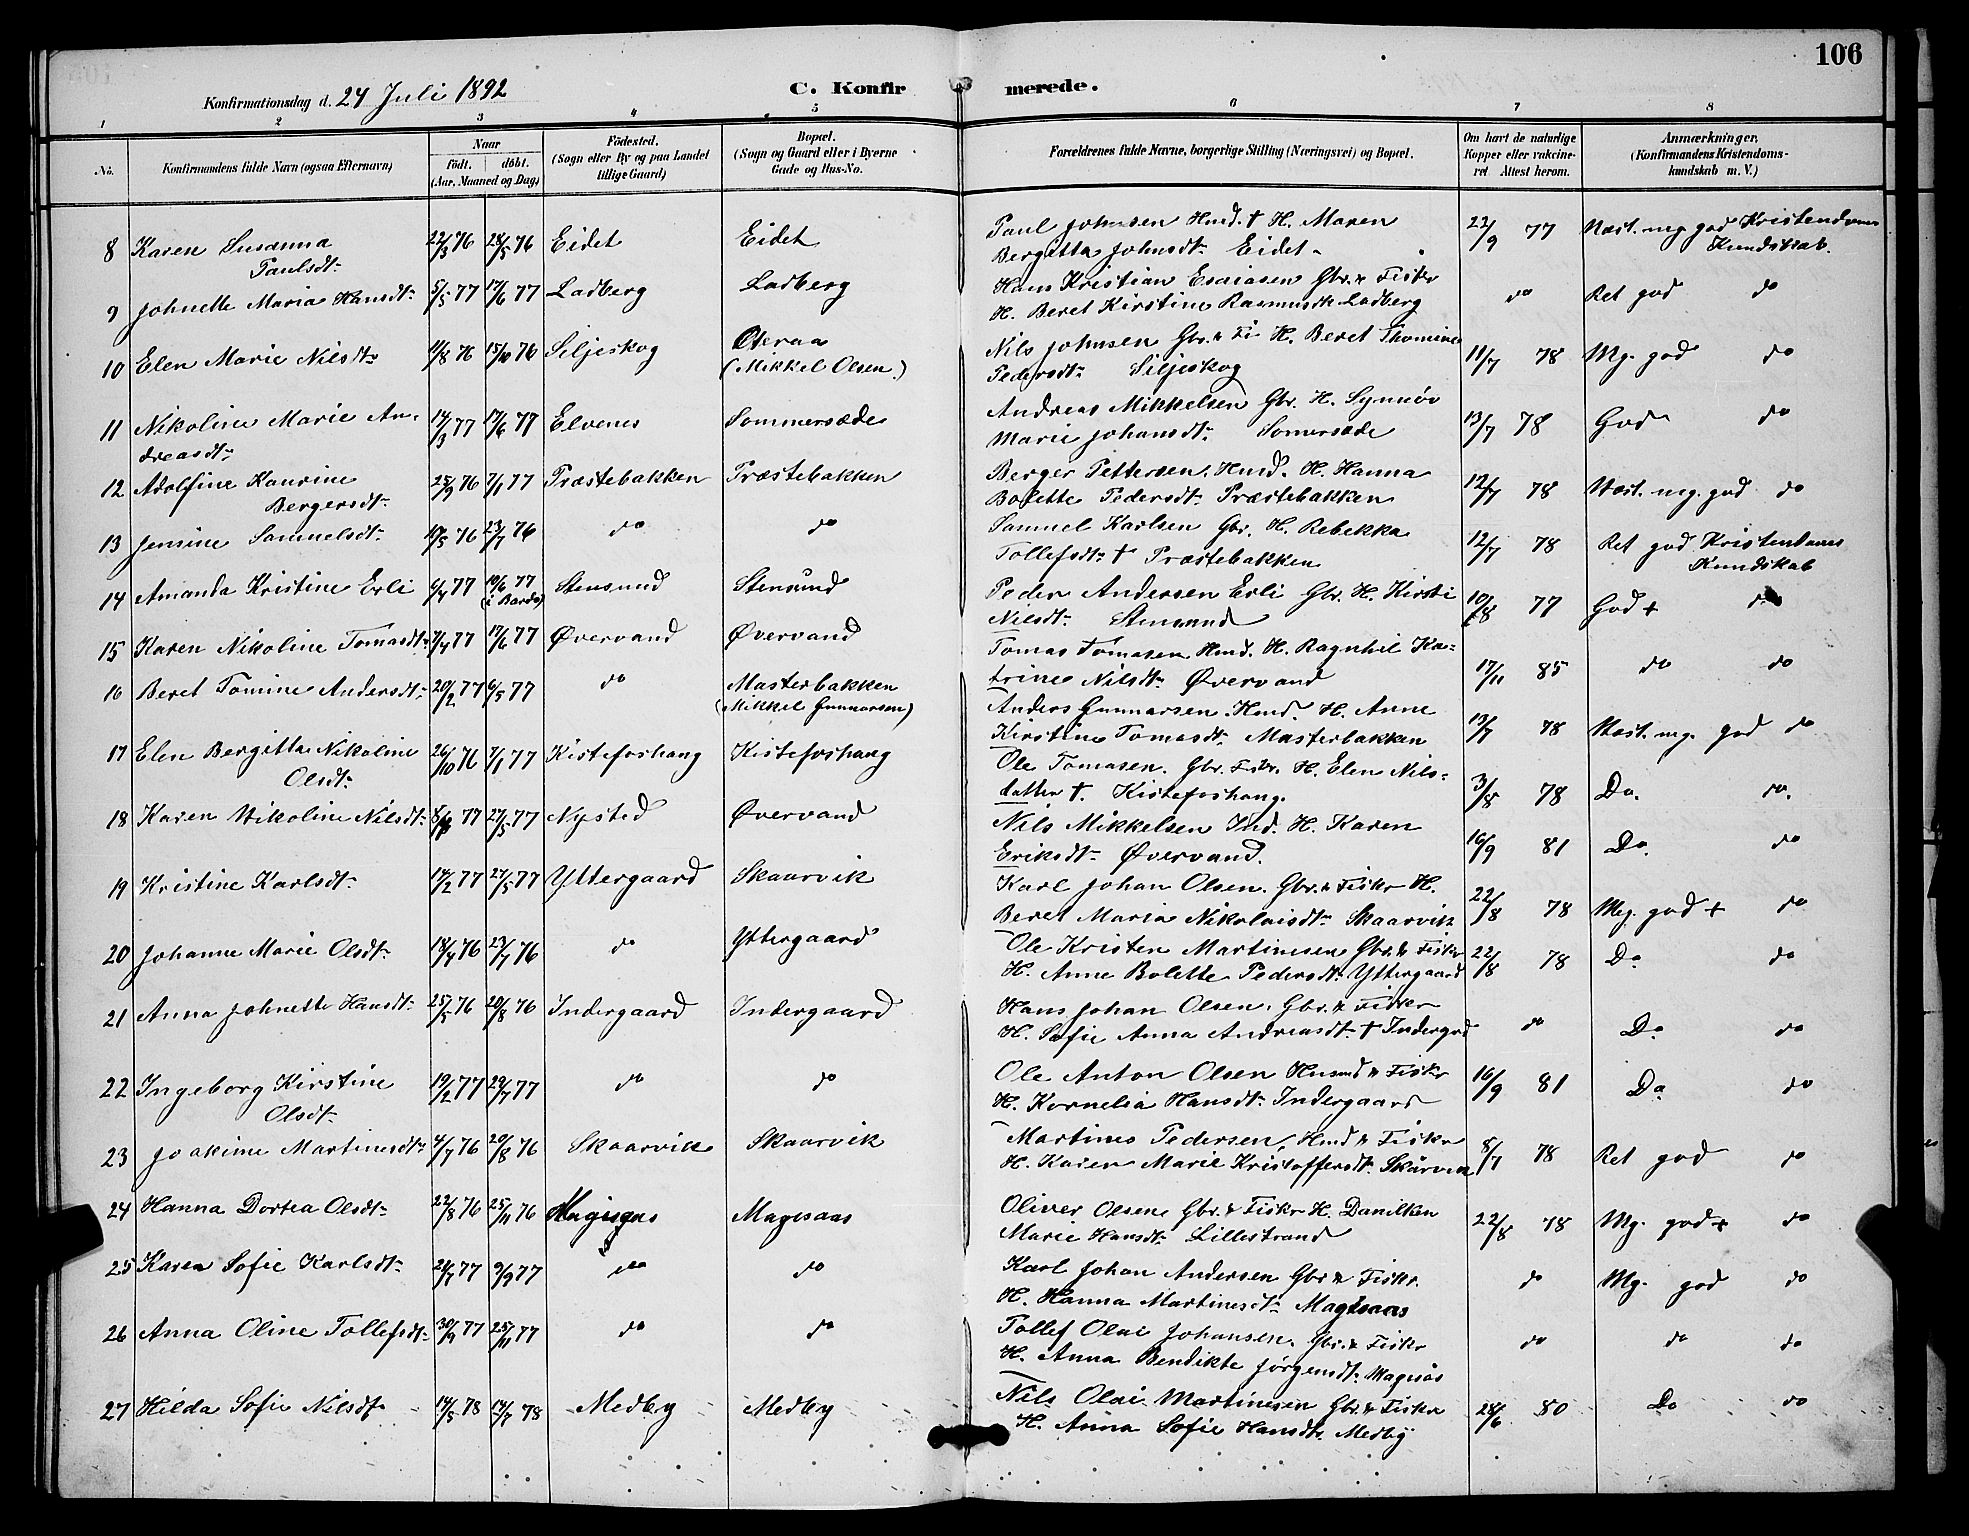 106
Konfirmationsdag d. 24 Juli 1892 C. Konfirmerede.
1 2 3 4 5 6 7 8
No. Konfirmandens fulde Navn (ogsaa Efternavn) Naar födt. döbt. (Aar, Maaned og Dag) Födested. (Sogn eller By og paa Landet tillige Gaard) Bopæl. (Sogn og Gaard eller i Byerne Gade og Hus-No. Forældrenes fulde Navne, borgerlige Stilling (Næringsvei) og Bopæl. Om havt de naturlige Kopper eller vakcineret Attest herom. Anmærkninger, (Konfirmandens Kristendomskundskab m. V.)
8 Karen Susanna 22/3 76 28/5 76 Eidet Eidet Paul Johnsen Hmd. † H. Maren 22/9 77 Næst. mg. god Kristendoms
Paulsdt. Bergitta Johnsdt. Eidet Kundskab.
9 Johnette Maria Hansdt. 5/5 77 17/6 77 Ladberg Ladberg Hans Kristian Esaiasen Gbr. & Fiskr do Ret god do
H. Beret Kirstine Rasmusdt. Ladberg
10 Elen Marie Nilsdt. 11/8 76 15/10 76 Siljeskog Øteraa Nils Johnsen Gbr. & Fi H. Beret Thomine 11/7 78 Mg. god do
(Mikkel Olsen) Pedersdt. Siljeskog
11 Nikoline Marie An- 14/3 77 17/6 77 Elvenes Sommersæde Andreas Mikkelsen Gbr. H. Synnöv 13/7 78 God do
dreasdt. Marie Johansdt. Somersæde
12 Adolfine Kaurine 25/9 76 7/1 77 Præstebakken Præstebakken Berger Pettersen, Hmd. H. Hanna 12/7 78 Næst. mg. god do
Bergersdt. Bolette Pedersdt. Præstebakken
13 Jensine Samuelsdt. 10/5 76 23/7 76 do do Samuel Karlsen Gbr. H. Rebekka 12/7 78 Ret god Kristendoms
Tollefsdt. † Præstebakken Kundskab
14 Amanda Kristine Erli 6/4 77 10/6 77 Stensund Stensund Peder Andersen Erli Gbr. H. Kirsti 10/8 77 God + do
(i Bardo) Nilsdt. Stensund
15 Karen Nikoline Tomasdt. 7/4 77 17/6 77 Øvervand Øvervand Tomas Tomasen Hmd. H. Ragnhil Ka- 17/11 85 do do
trine Nilsdt. Øvervand
16 Beret Tomine Andersdt. 20/2 77 6/5 77 do Masterbakken Anders Gunnarsen. Hmd. H. Anne 13/7 78 Næst. mg. god do
(Mikkel Gunnarsen) Kirstine Tomasdt. Masterbakken
17 Elen Bergitta Nikoline 26/10 76 7/1 77 Kistefoshaug Kistefoshaug Ole Tomasen. Gbr. Fiskr. H. Elen Nils- 3/8 78 Do. do.
Olsdt. datter †. Kistefoshaug.
18 Karen Nikoline Nilsdt. 77 27/5 77 Nysted Øvervand Nils Mikkelsen Ind. H. Karen 16/9 81 Do. do
Eriksdt. Øvervand.
19 Kristine Karlsdt. 14/2 77 27/5 77 Yttergaard Skaarvik Karl Johan Olsen. Gbr. & Fiskr H. 22/8 78 Mg. god + do
Beret Maria Nikolaisdt. Skaarvik
20 Johanne Marie Olsdt. 18/4 76 23/7 76 do Yttergaard Ole Kristen Martinesen Gbr. & Fiskr 22/8 78 Do do
H. Anne Bolette Pedersdt. Yttergaard
21 Anna Johnette Hansdt. 25/5 76 20/8 76 Indergaard Indergaard Hans Johan Olsen. Gbr. & Fiskr do Do do
H. Sofie Anna Andreasdt. † Indergrd
22 Ingeborg Kirstine 19/2 77 29/7 77 do do Ole Anton Olsen Husmd & Fiskr 16/9 81 Do do
Olsdt. H. Kornelia Hansdt. Indergaard
23 Joakime Martinesdt. 4/7 76 20/8 76 Skaarvik Skaarvik Martines Pedersen, Hmd & Fiskr 8/7 78 Ret god do
H. Karen Marie Kristoffersdt. Skårvik
24 Hanna Dortea Olsdt. 22/8 76 25/11 76 Magesaas Oliver Olsen Gbr. & Fiskr H. Danilken 22/8 78 Mg. god + do
Marie Hansdt. Lillestrand
25 Karen Sofie Karlsdt. 24/7 77 9/9 77 do do Karl Johan Andersen Gbr & Fiskr. do Mg. god do
H. Hanna Martinesdt. Magesaas
26 Anna Oline Tollefsdt. 30/9 77 25/11 77 do do Tollef Olai Johansen. Gbr. & Fiskr do do do
H. Anna Bendikte Jörgensdt. Magesås
27 Hilda Sofie Nilsdt 14/5 78 14/7 78 Medby Medby Nils Olai Martinesen Gbr. & Fiskr 28/6 80 Do do
H. Anna Sofie Hansdt. Medby